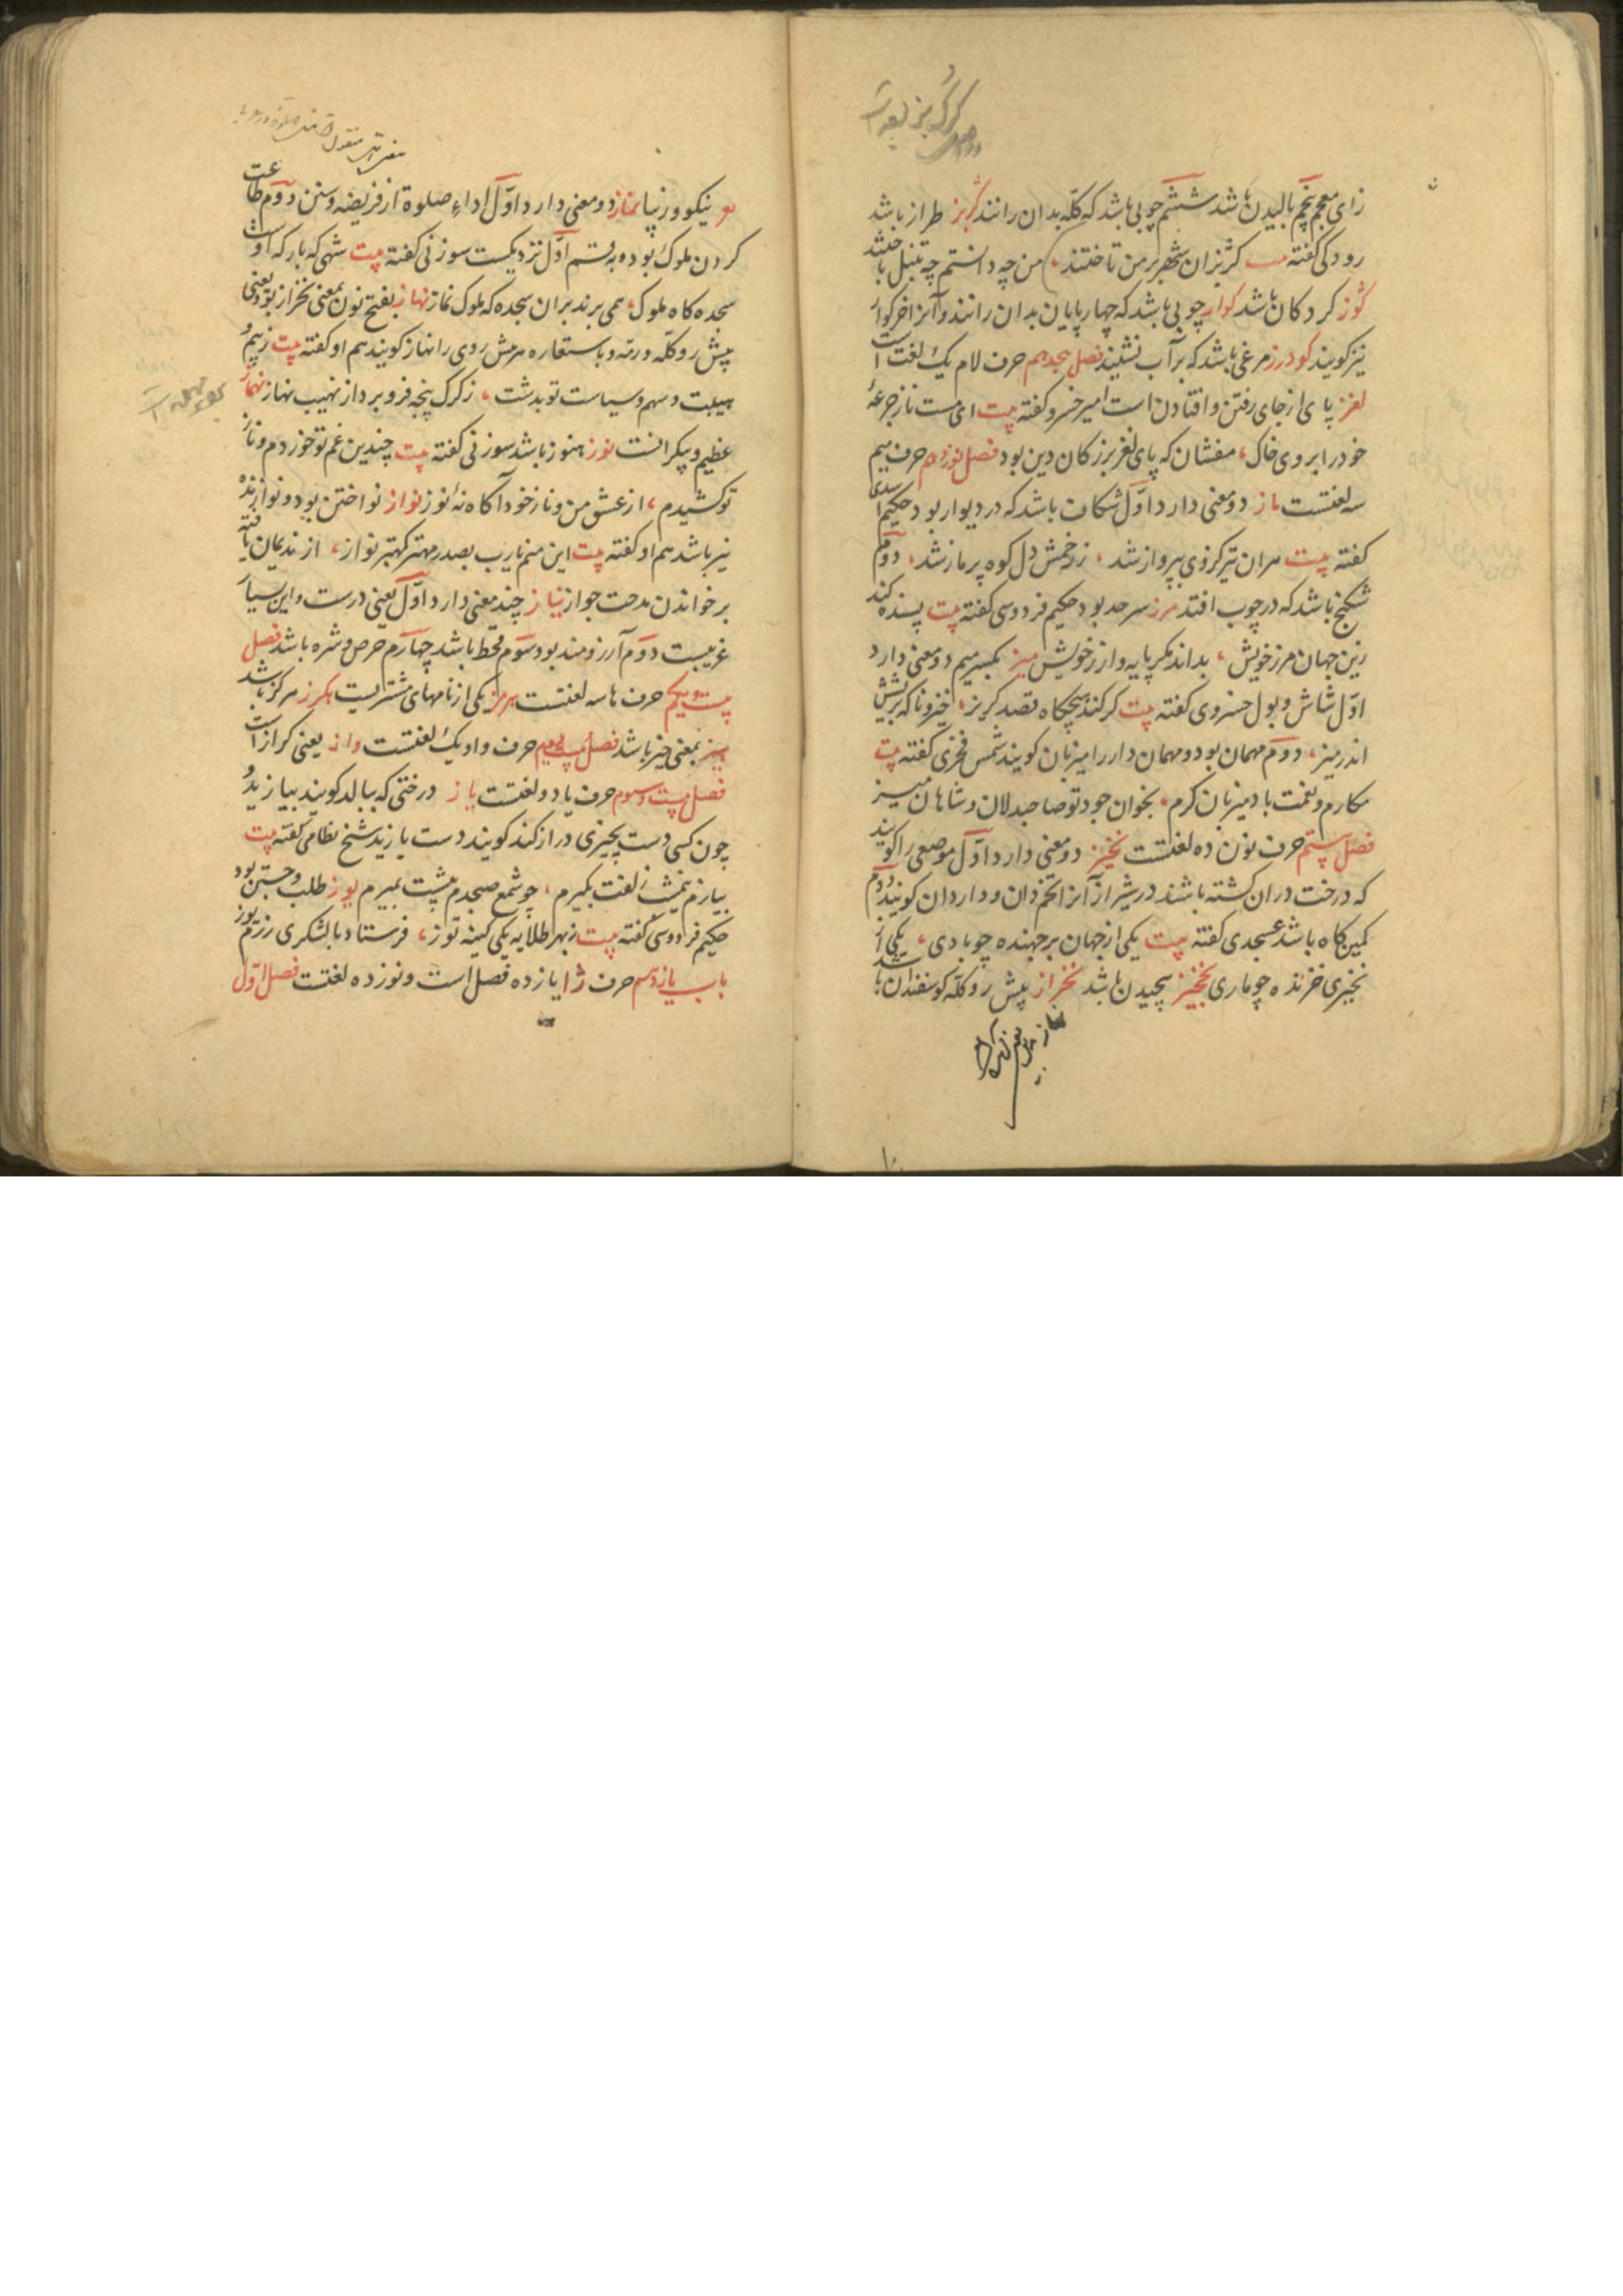 زای معجم پنجم بالیدن باشد ششم چوبی باشد که کله بدان رانند گربز طراز باشد
رودکی گفته گربزان شهر بر من تاختند من چه دانستم چه تنبل باختند
گوز کردکان باشد گواز چوبی باشد که چهارپایان بدان رانند و آنرا خرکواز
نیز کویند کودرز مرغی باشد که بر آب نشیند فصل هجدهم حرف لام یک لغت است
لغز پای از جای رفتن و افتادن است امیر خسرو گفته بیت ای مست ناز جرعهٔ
خود را بروی خاک، مفشان که پای لغز بزرکان دین بود فصل نوزدهم حرف میم
سه لغتست ماز دو معنی دارد اوّل شکاف باشد که در دیوار بود حکیم اسدی
گفته بیت سران تیر کزوی بپرواز شد، ز زخمش دل کوه پر ماز شد، دوم
شکنج باشد که در چوب افتد مرز سرحد بود حکیم فردوسی گفته بیت پسنده کند
زین جهان مرز خویش، بداند مکر پایه و ارز خویش میز بکسر میم دو معنی دارد
اوّل شاش و بول خسروی گفته بیت کر کند هیچکاه قصد کریز، خیز ناکه بریشش
اندر میز، دوم مهمان بود و مهمان دار را میزبان کویند شمس فخری گفته بیت
مکارم و نعمت باد میزبان کرم، بخوان جود تو صاحبدلان و شاهان میز
فصل بیستم حرف نون ده لغتست نخیز دو معنی دارد اوّل موضعی را کویند
که درخت دران کشته باشند در شیراز آنرا تخمدان و داردان کویند دوم
کمین کاه باشد عسجدی گفته بیت یکی از جهان برجهنده چو بادی، یکی از
نخیزی خزنده چو ماری نخیز پیچیدن باشد نخراز پیش رو کله کوسفندان باشد
نیکو و زیبا نماز دو معنی دارد اوّل اداء صلوة از فریضه و سنن دوم طاعت
کردن ملوک بود و به قسم اوّل نزدیکست سوزنی گفته بیت شهی که بارکه اوست
سجده کاه ملوک، همی برند بران سجده که ملوک نماز نهاز بفتح نون بمعنی نخراز بود یعنی
پیش رو کله و رمه و باستعاره سرهش روی را نهاز کویند هم او گفته بیت ز بیم و
هیبت و سهم و سیاست تو بدشت، ز کرک پنجه فرو برد از نهیب نهاز نهمار
عظیم و بیکرانست نوز هنوز باشد سوزنی گفته بیت چندین غم تو خوردم و ناز
تو کشیدم، از عشق من و ناز خود آکاه نهٔ نوز نواز نواختن بود و نوازنده
نیز باشد هم او گفته بیت این منم یارب بصدر مهتر کهتر نواز، از ندیمان یافته
بر خواندن مدحت جواز نیاز چند معنی دارد اوّل یعنی درست و این بسیار
غریبست دوم آرزومند بود سوم قحط باشد چهارم حرص و شره باشد فصل
بیست و یکم حرف ها سه لغتست هرمز یکی از نامهای مشتریست هکرز هرکز باشد
هیز بمعنی حیز باشد فصل بیست و دویم حرف واو یک لغتست واز یعنی کراز است
فصل بیست و سوم حرف یا دو لغتست یاز درختی که ببالد کویند بیازید و
چون کسی دست بچیزی دراز کند کویند دست یازید شیخ نظامی گفته بیت
بیازم نیمشب زلفت بکیرم، چو شمع صبحدم پیشت بمیرم یوز طلب و جستن بود
حکیم فردوسی گفته بیت ز بهر طلایه یکی کینه توز، فرستاد با لشکری رزم یوز
باب یازدهم حرف ژا یازده فصل است و نوزده لغتست فصل اوّل